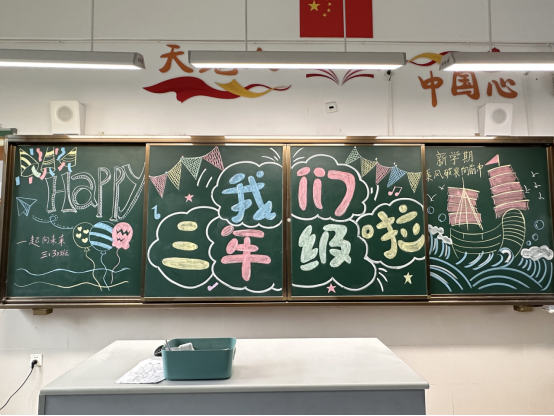 中国心
HAPPY
一起向未来
我们
三年级啦
新学期
乘风破浪向前冲